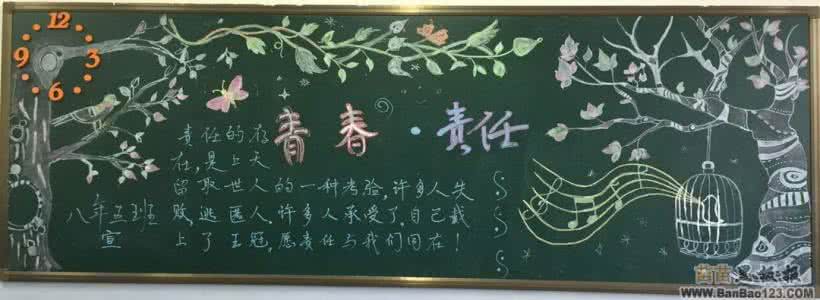 12
9 3
6
青春·责任
责任的存
在,是上天
留取世人的一种考验,许多人失
败,逃匿人,许多人承受了,自己戴
上了王冠,愿责任与我们同在!
八年五班
宣
黑板报
www.BanBao123.com